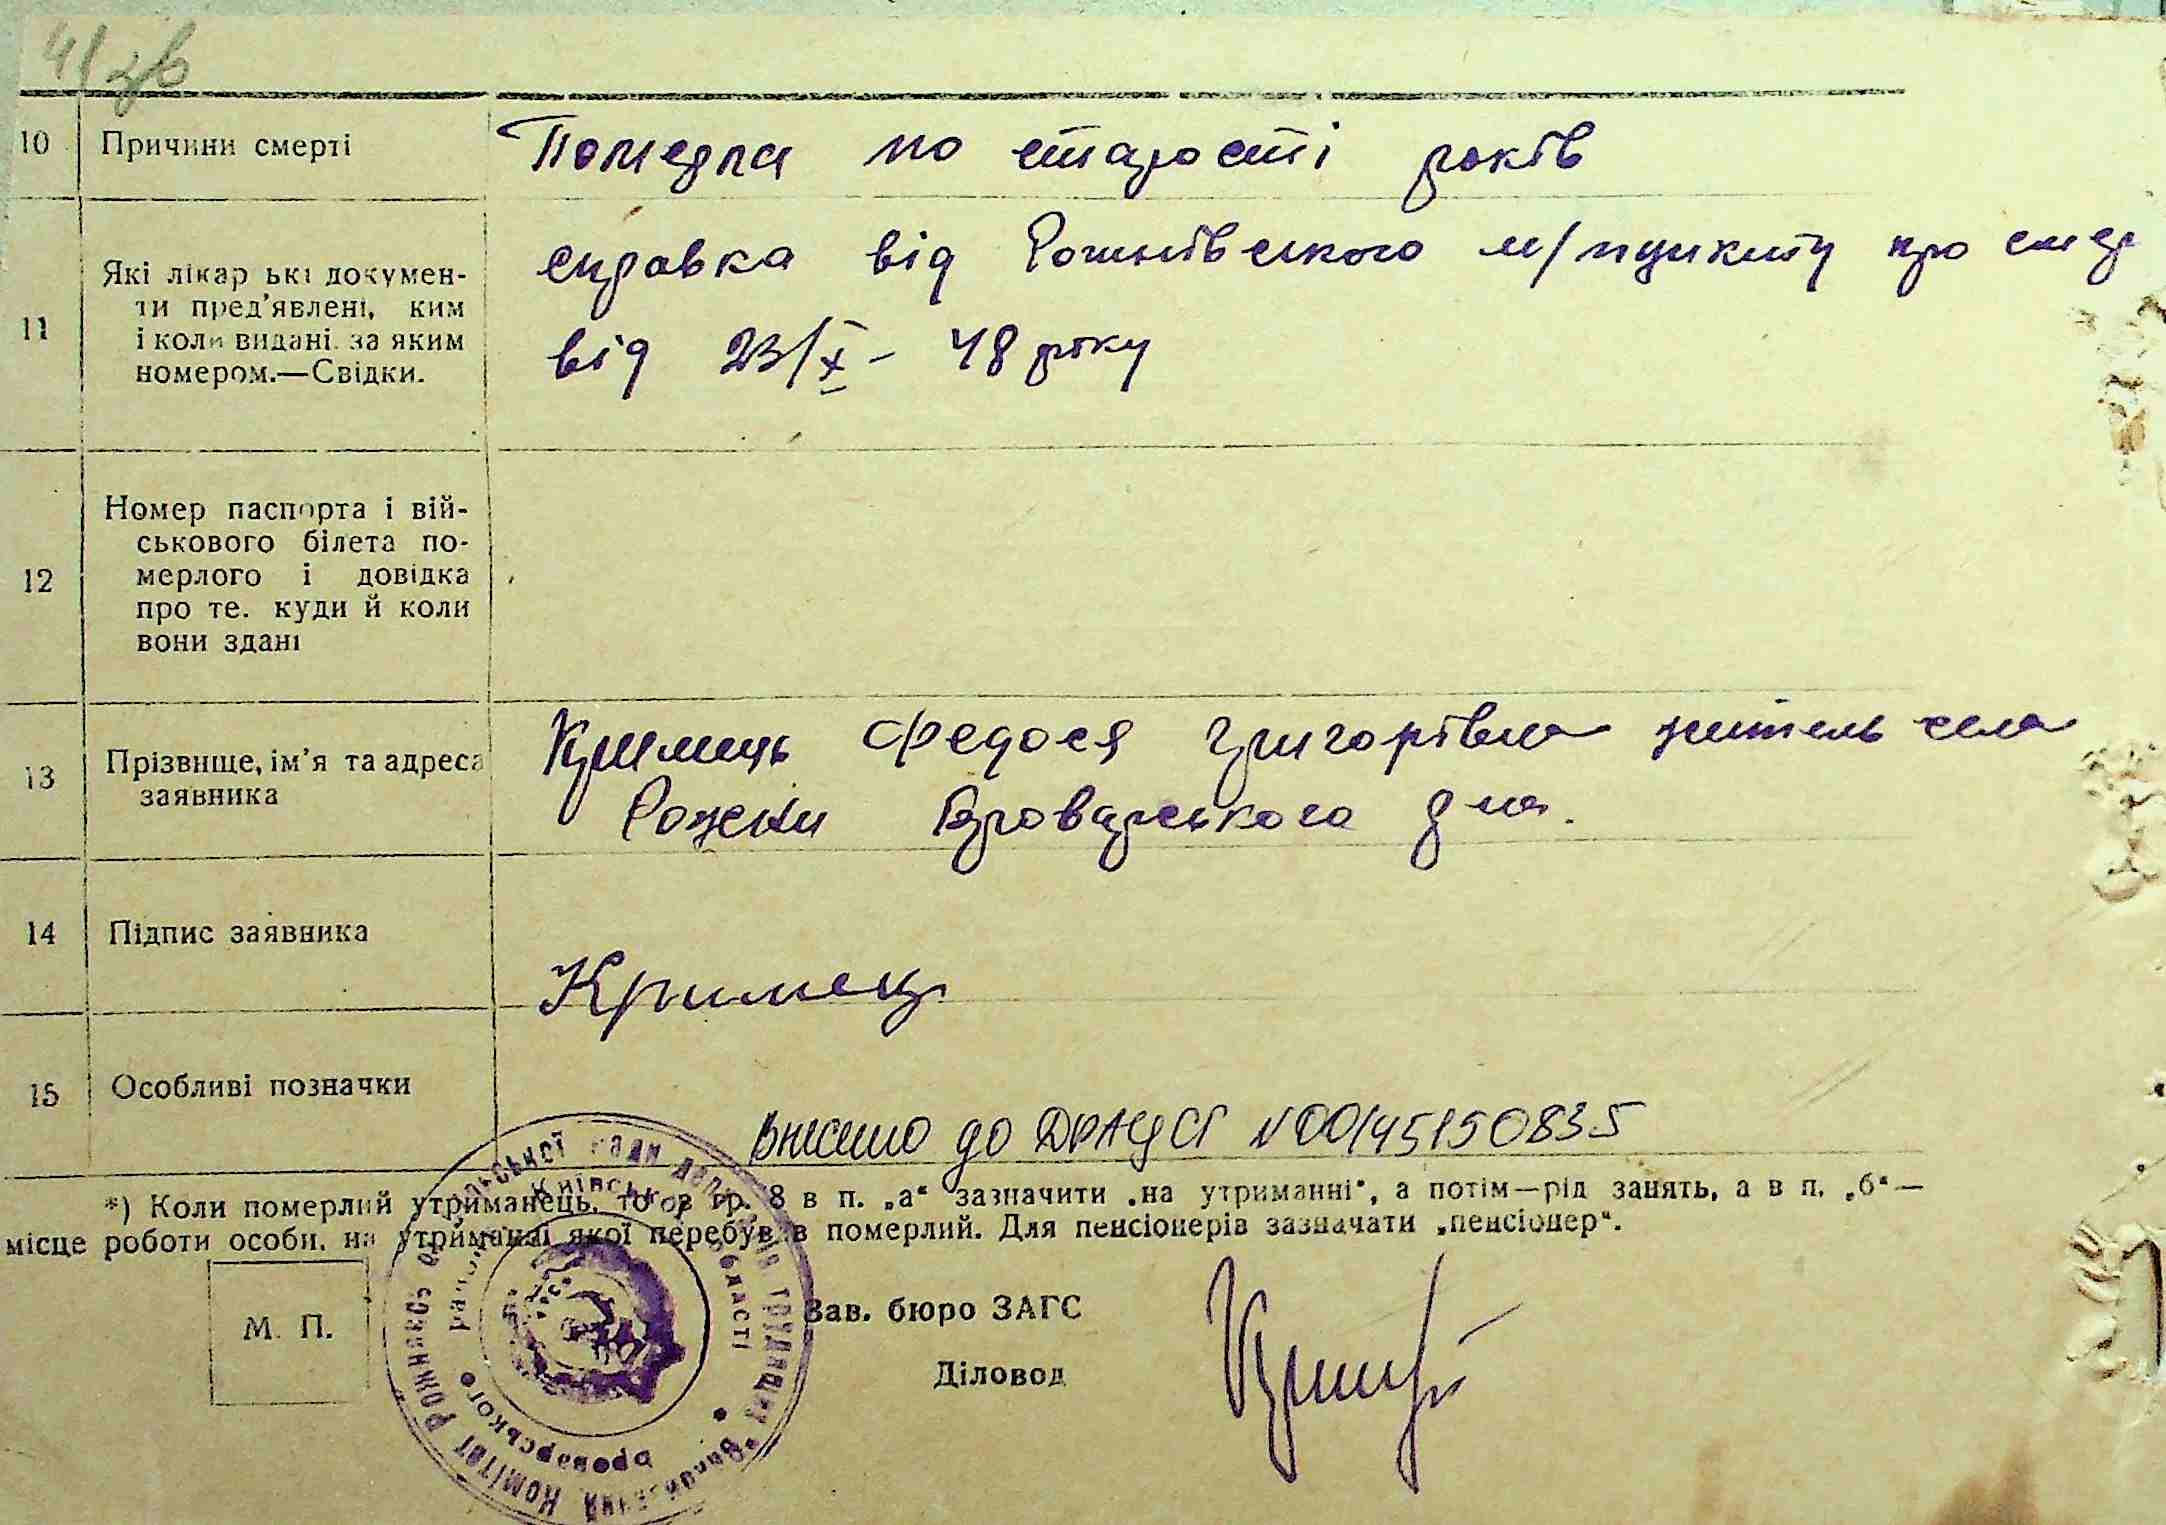 41/зв
10 Причини смерті
Померла по старості років
11 Які лікар ькі докумен-
ти пред’явлені, ким
і коли видані. за яким
номером.—Свідки.
справка від Рожнівського м/пункту про смер
від 23/X – 48 року
12 Номер паспорта і вій-
ськового білета по-
мерлого і довідка
про те. куди й коли
вони здані
13 Прізвище, ім’я та адреса
заявника
Кримець Федося Григорівна житель села
Рожни Броварського р-на.
14 Підпис заявника
Кримец
15 Особливі позначки
Внесено до ДРАЦСГ N00145150835
*) Коли померлий утриманець, то в гр. 8 в п. „а“ зазначити „на утриманні“, а потім—рід занять, а в п. „б“—
місце роботи особи. на утриманні якої перебув в померлий. Для пенсіонерів зазначати „пенсіонер“.
М. П.
Зав. бюро ЗАГС
Діловод
Виконавчий Комітет Рожнівсь ої сільської ради депу тів трудящих
Броварського району Київської області